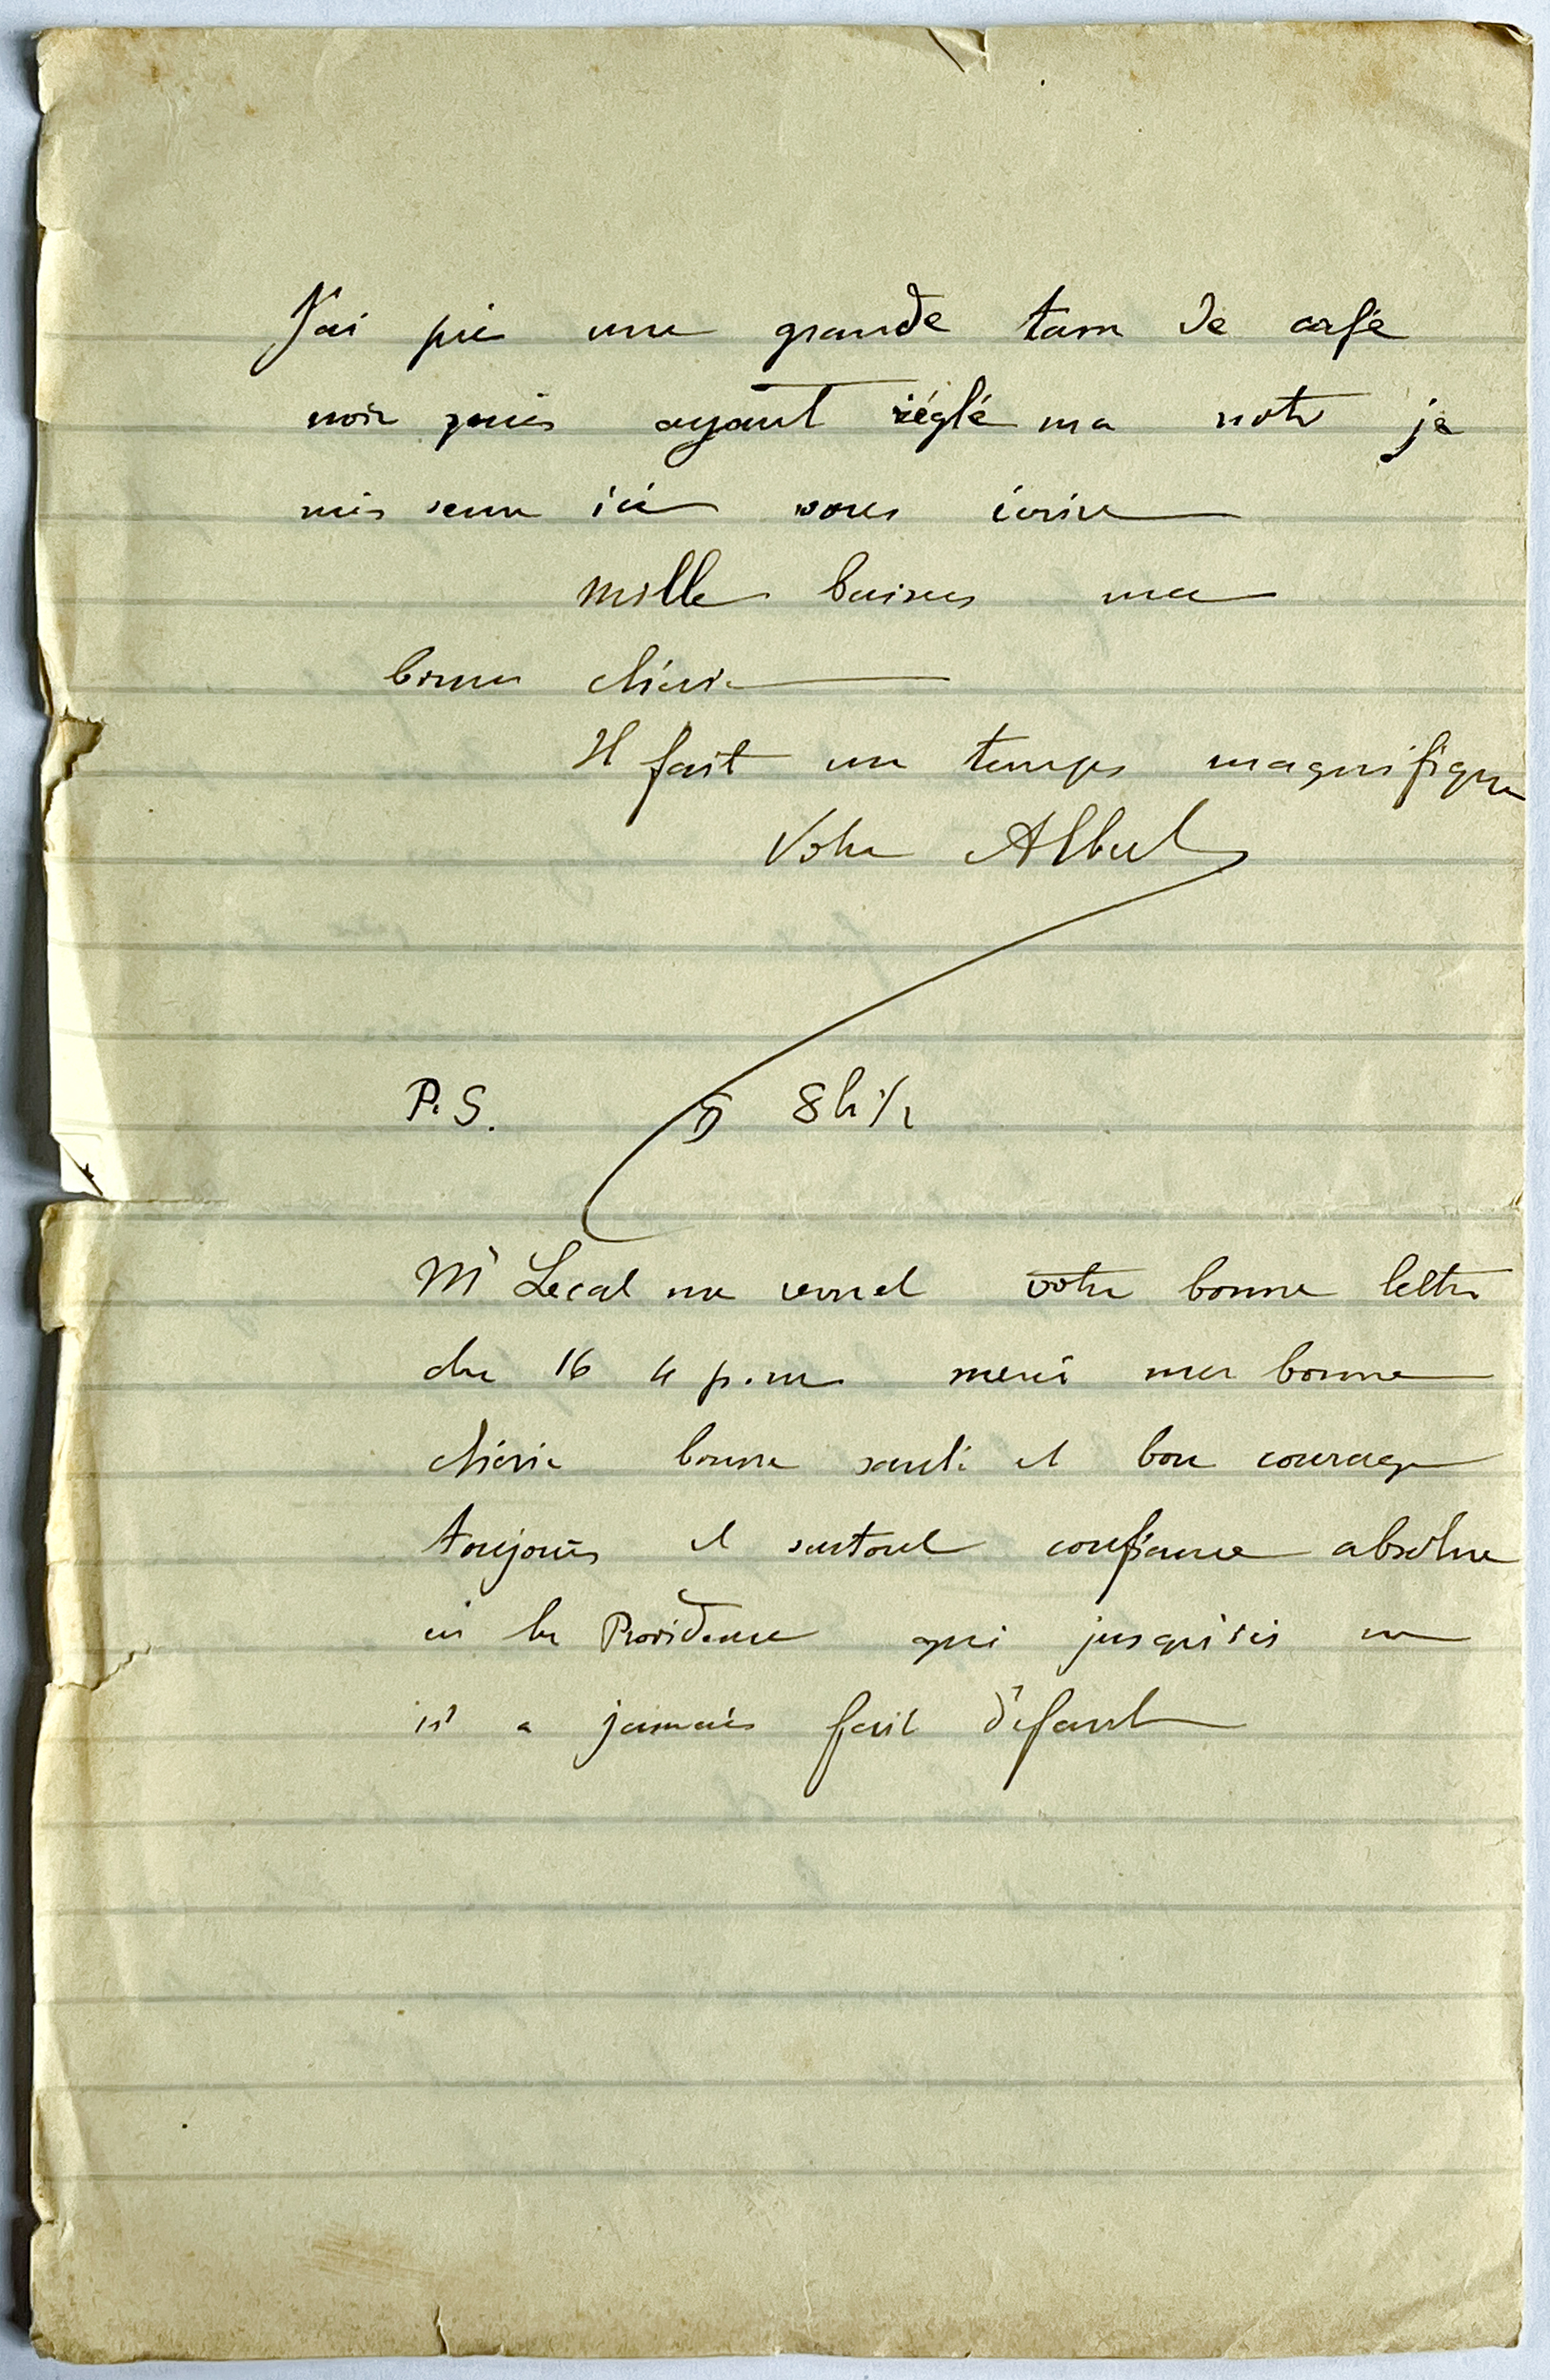 J'ai pris une grande tasse de café
noir puis ayant réglé ma note je
suis venu ici vous écrire
mille baisers ma
bonne chérie
Il fait un temps magnifique
Votre Albert
P.S. 8h 1/2
Mr Lecal me remet votre bonne lettre
du 16 4 p.m. merci ma bonne
chérie bonne santé et bon courage
toujours et surtout confiance absolue
en la Providence qui jusqu'ici ne
n'a jamais fait défaut